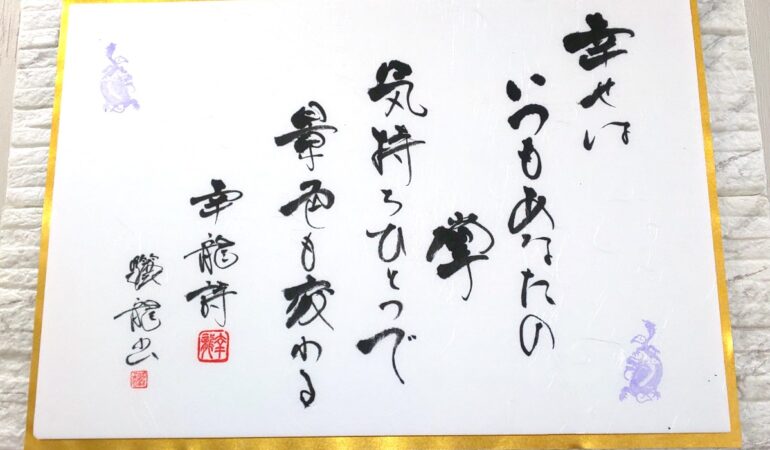 幸せは
いつもあなたの
掌
気持ちひとつで
景色も変わる
幸龍詩
龍出
幸龍